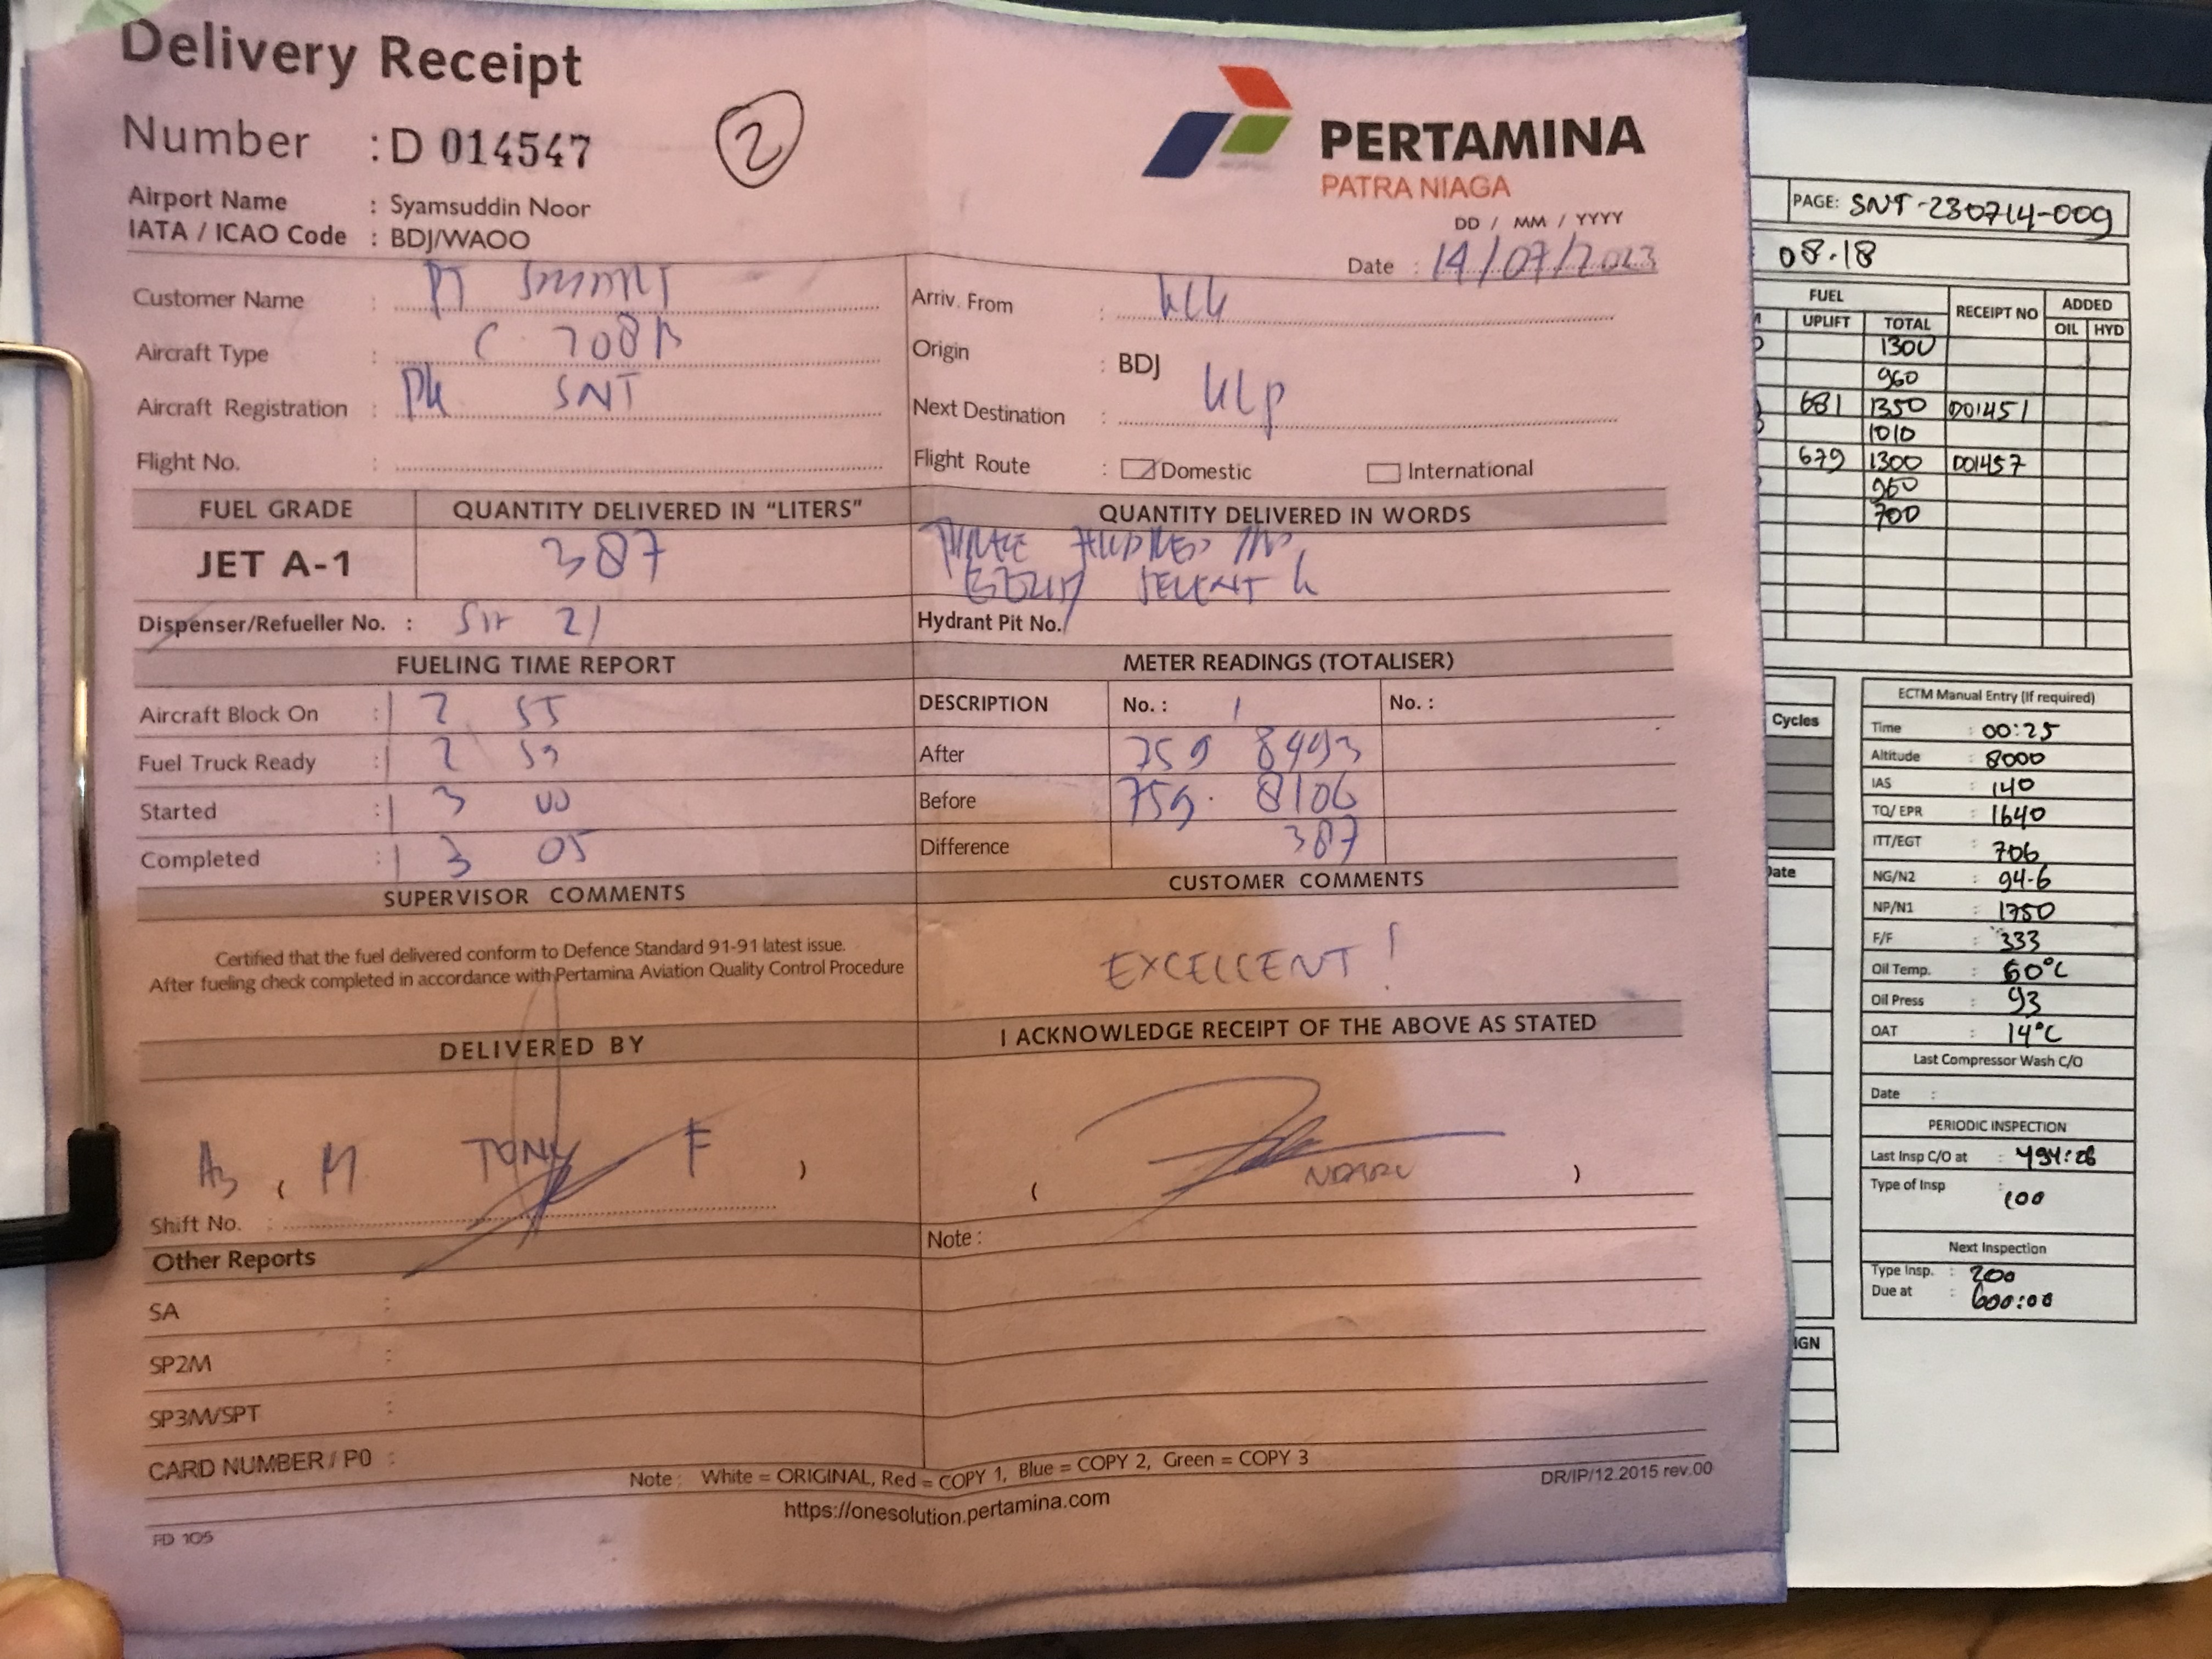 Delivery Receipt
Number : D 014547
2
PERTAMINA
PATRA NIAGA
Airport Name : Syamsuddin Noor
IATA / ICAO Code : BDJ/WAOO
DD / MM / YYYY
Date : 14/07/2023
Customer Name : PT
Arriv. From :
Aircraft Type : C 208B
Origin : BDJ
Aircraft Registration : PK SNT
Next Destination : KLP
Flight No. :
Flight Route : Domestic International
FUEL GRADE QUANTITY DELIVERED IN "LITERS" QUANTITY DELIVERED IN WORDS
JET A-1 387 THREE HUNDRED
Dispenser/Refueller No. : 21
Hydrant Pit No.
FUELING TIME REPORT METER READINGS (TOTALISER)
Aircraft Block On : 12 55
DESCRIPTION No. : 1 No. :
Fuel Truck Ready : 12 59
After 759 8493
Started : 13 00
Before 759. 8106
Completed : 13 05
Difference 387
SUPERVISOR COMMENTS CUSTOMER COMMENTS
Certified that the fuel delivered conform to Defence Standard 91-91 latest issue.
After fueling check completed in accordance with Pertamina Aviation Quality Control Procedure
EXCELLENT !
DELIVERED BY I ACKNOWLEDGE RECEIPT OF THE ABOVE AS STATED
( M TONY F )
( )
Shift No. :
Note :
Other Reports
SA :
SP2M :
SP3M/SPT :
CARD NUMBER / P0 :
Note : White = ORIGINAL, Red = COPY 1, Blue = COPY 2, Green = COPY 3
DR/IP/12.2015 rev.00
https://onesolution.pertamina.com
FD 105
PAGE: SNT-230714-009
08.18
FUEL RECEIPT NO ADDED
UPLIFT TOTAL OIL HYD
1300
960
681 1350 D01451
1010
679 1300 D01457
960
700
Cycles
Date
IGN
ECTM Manual Entry (If required)
Time : 00:25
Altitude : 8000
IAS : 140
TQ/ EPR : 1640
ITT/EGT : 706
NG/N2 : 94.6
NP/N1 : 1750
F/F : 333
Oil Temp. : 60°C
Oil Press : 93
OAT : 14°C
Last Compressor Wash C/O
Date :
PERIODIC INSPECTION
Last Insp C/O at : 494:28
Type of Insp : 100
Next Inspection
Type Insp. : 200
Due at : 600:00